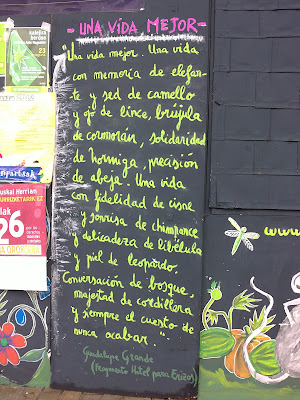 - UNA VIDA MEJOR -
"Una vida mejor. Una vida
con memoria de elefan-
te y sed de camello
y ojo de lince, brújula
de cormorán, solidaridad
de hormiga, precisión
de abeja. Una vida
con fidelidad de cisne
y sonrisa de chimpancé
y delicadeza de libélula
y piel de leopardo.
Conversación de bosque,
majestad de cordillera
y siempre el cuento de
nunca acabar."
Guadalupe Grande
(fragmento Hotel para Erizos)
kalejira
herriko
23
uskal Herrian
lak
26
www.